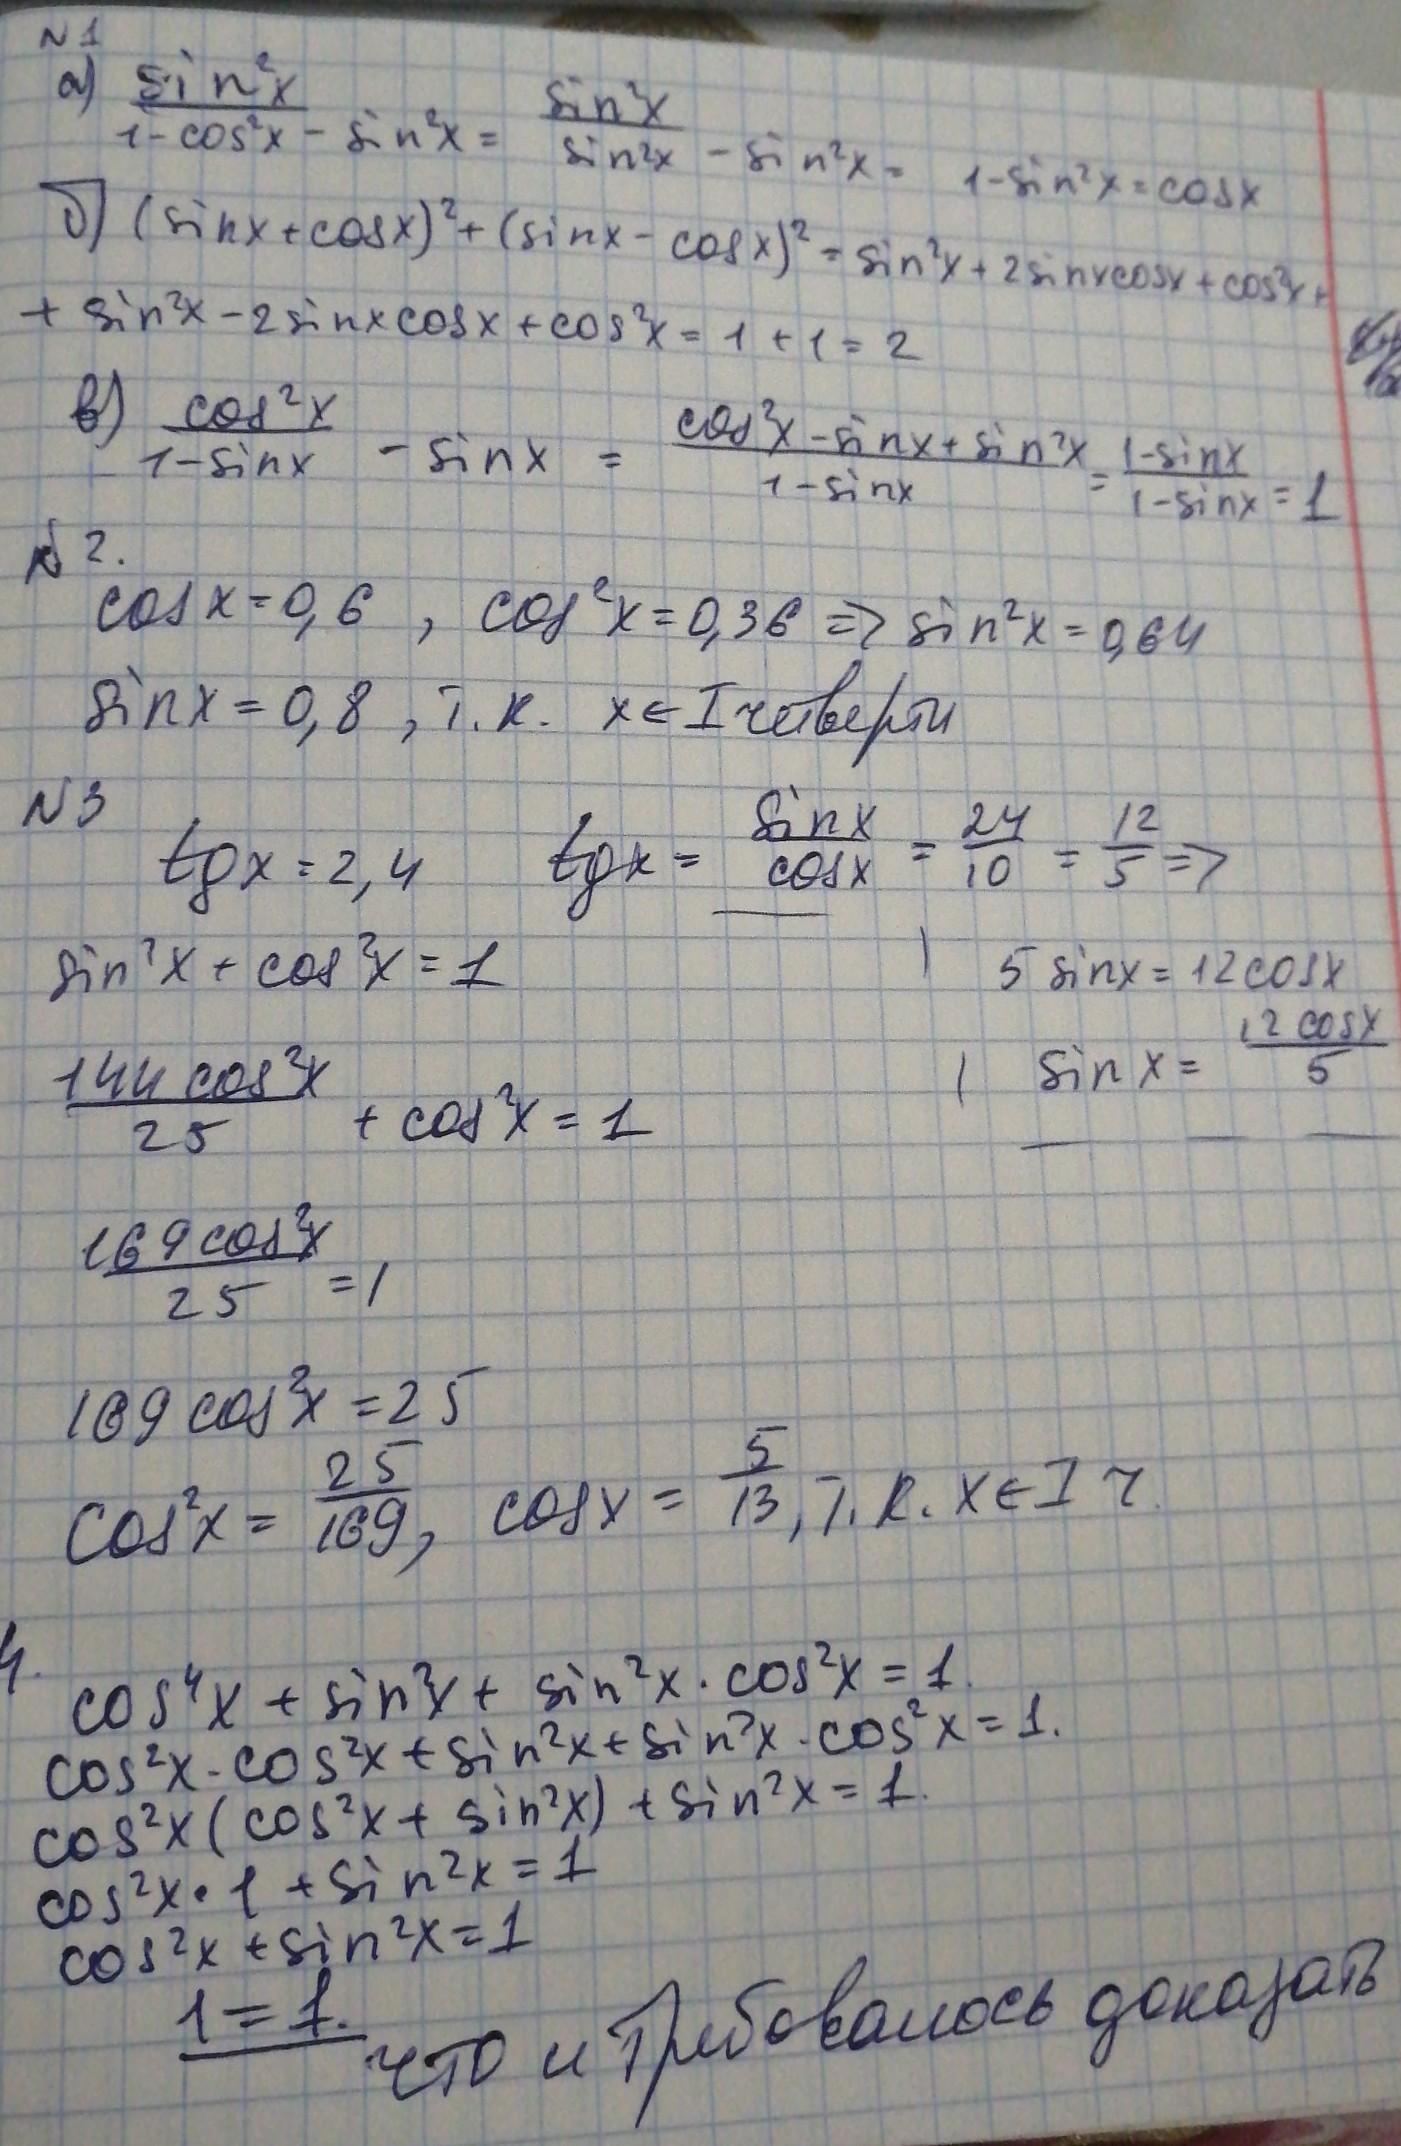 N1
а) sin²x/1-cos²x - sin²x = sin²x/sin²x - sin²x = 1-sin²x = cosx
б) (sinx+cosx)²+(sinx-cosx)² = sin²x+2sinxcosx+cos²x+
+ sin²x-2sinxcosx+cos²x = 1+1=2
в) cos²x/1-sinx - sinx = cos²x-sinx+sin²x/1-sinx = 1-sinx/1-sinx = 1
N2.
cosx=0,6, cos²x=0,36 => sin²x=0,64
sinx=0,8, т.к. x∈I четверти
N3
tgx=2,4 tgx = sinx/cosx = 24/10 = 12/5 =>
sin²x+cos²x=1 5sinx=12cosx
144cos²x/25 + cos²x=1 sinx = 12cosx/5
169cos²x/25 = 1
169cos²x=25
cos²x = 25/169, cosx = 5/13, т.к. x∈I ч.
4.
cos⁴x + sin²x + sin²x·cos²x=1.
cos²x·cos²x+sin²x+sin²x·cos²x=1.
cos²x(cos²x+sin²x)+sin²x=1.
cos²x·1+sin²x=1
cos²x+sin²x=1
1=1. что и требовалось доказать